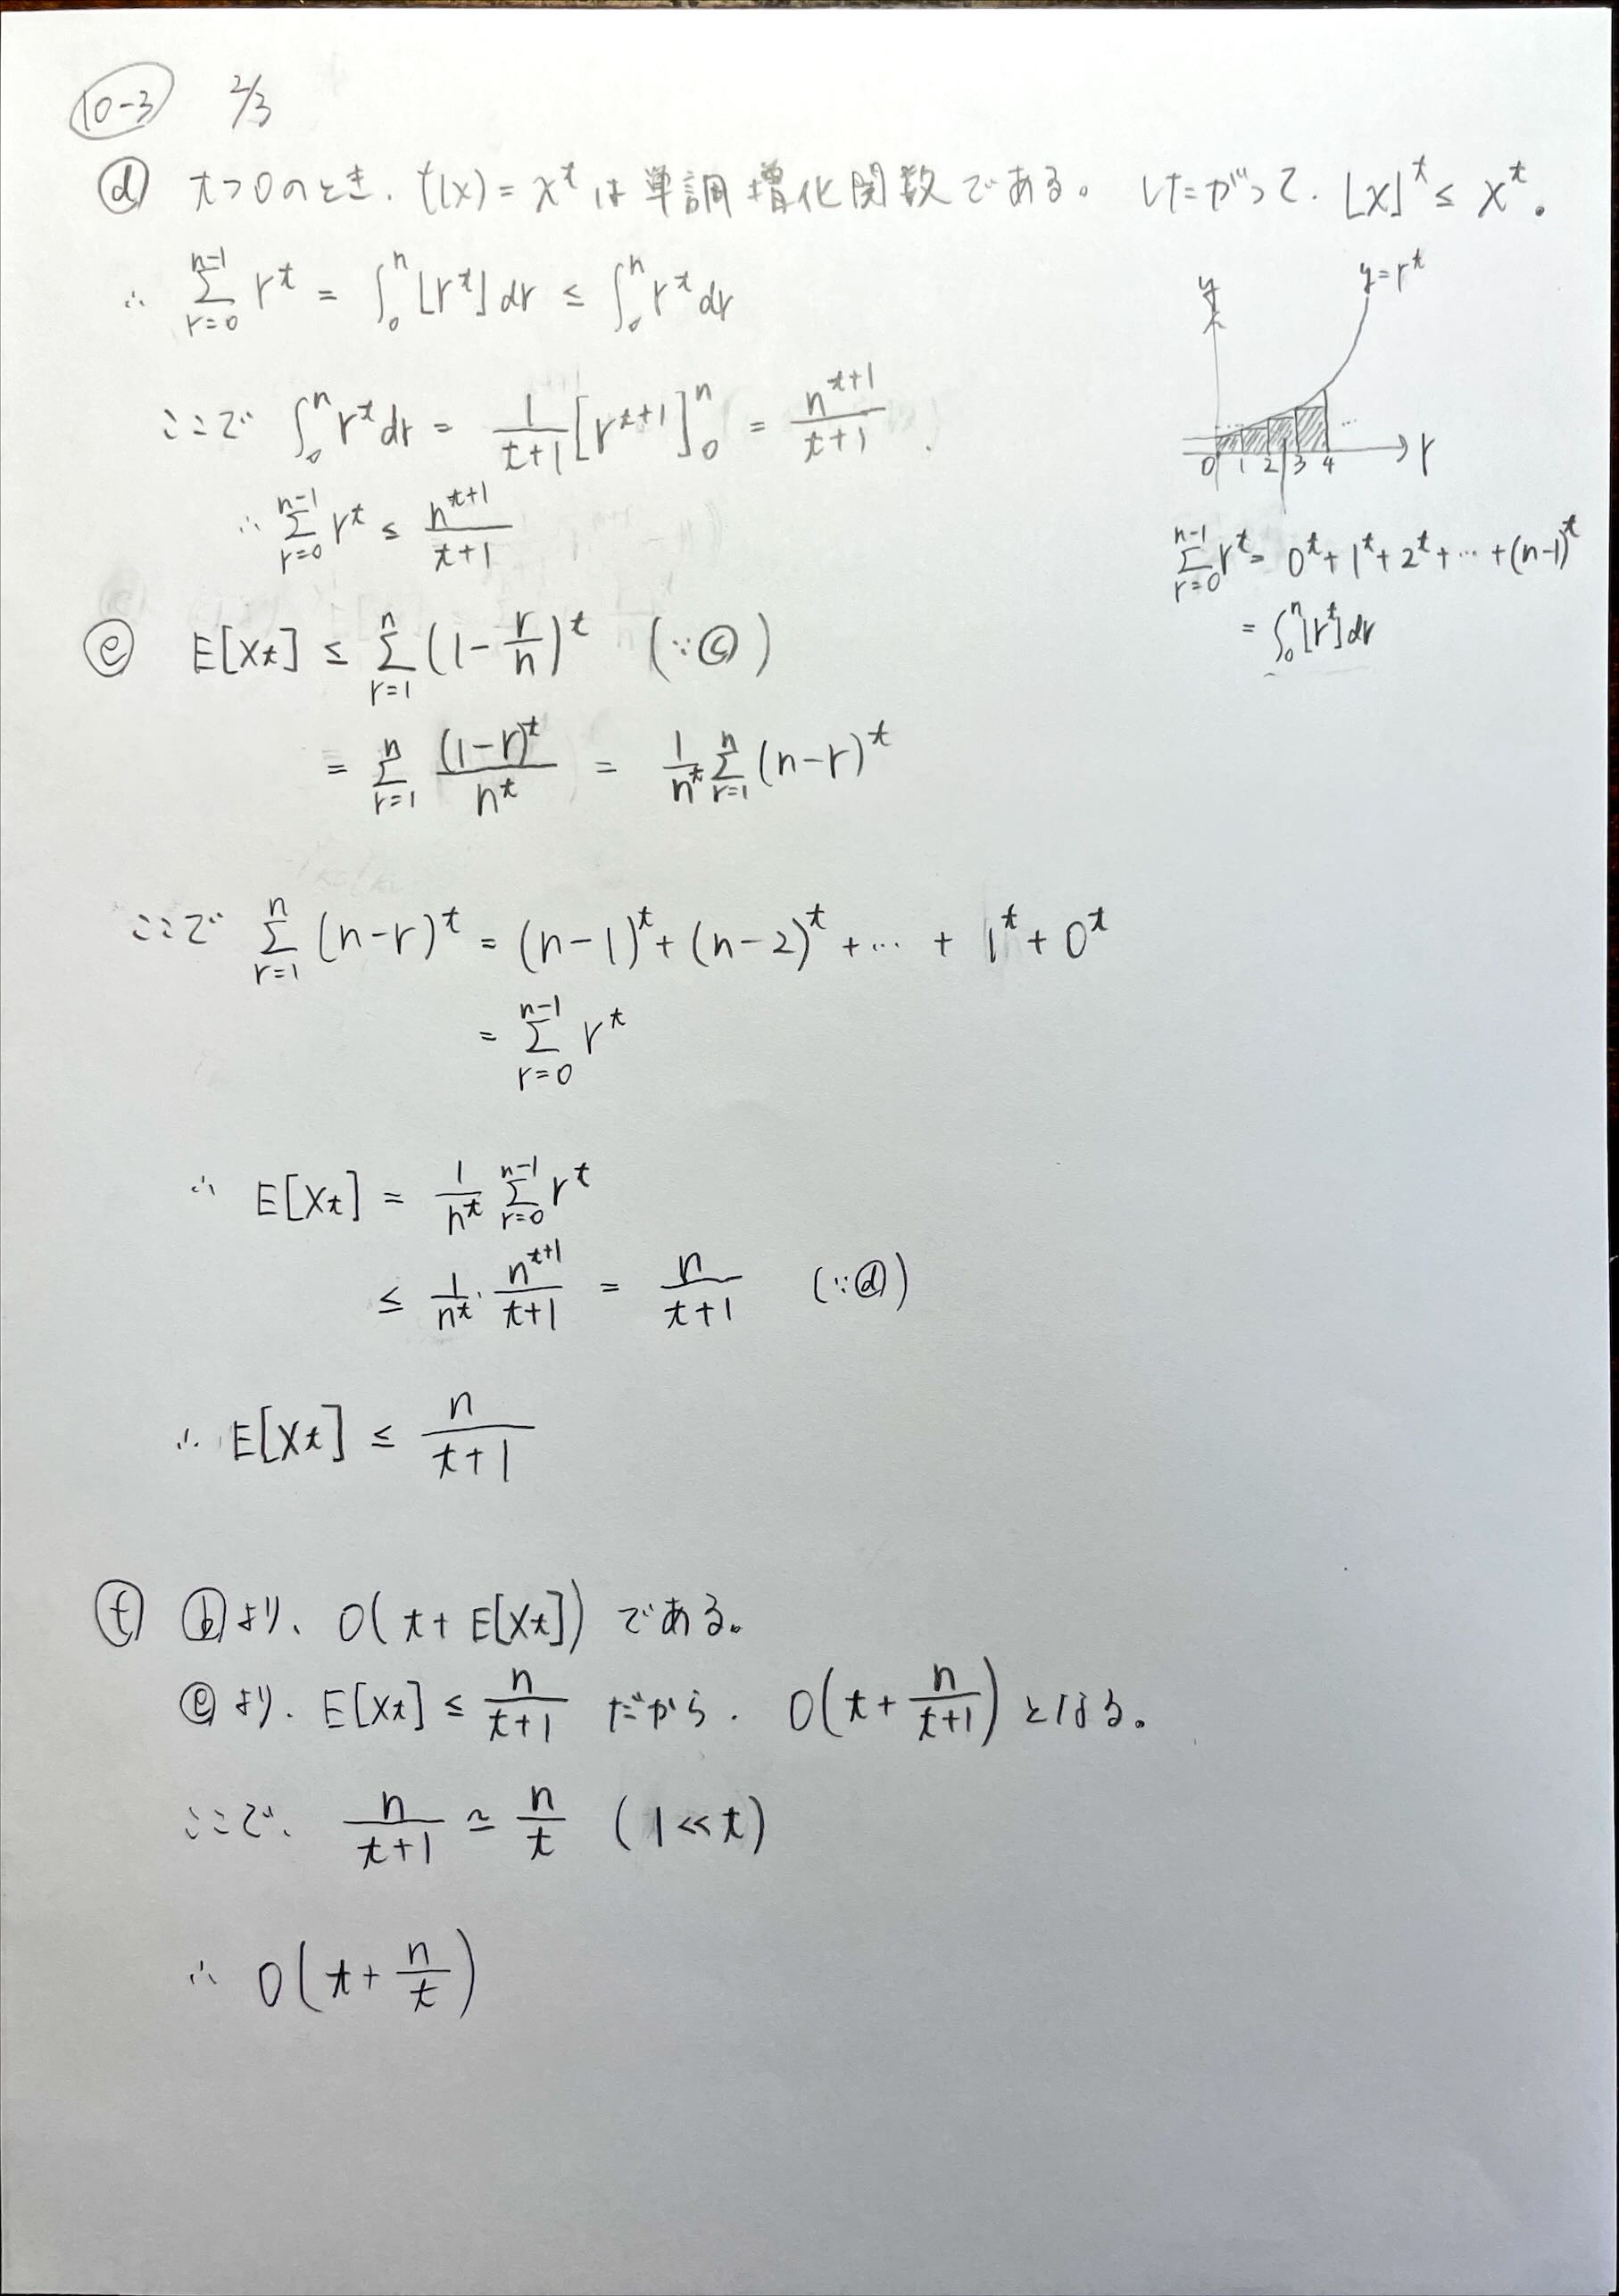 10-3 2/3
ⓓ t>0のとき. f(x) = x^t は単調増化関数である。 したがって. ⌊x⌋^t ≤ x^t。
∴ Σ_{r=0}^{n-1} r^t = ∫_0^n ⌊r^t⌋ dr ≤ ∫_0^n r^t dr
ここで ∫_0^n r^t dr = 1/(t+1) [r^{t+1}]_0^n = n^{t+1}/(t+1).
∴ Σ_{r=0}^{n-1} r^t ≤ n^{t+1}/(t+1)
y
y=r^t
0 1 2 3 4 … r
Σ_{r=0}^{n-1} r^t = 0^t + 1^t + 2^t + … + (n-1)^t
= ∫_0^n ⌊r^t⌋ dr
ⓔ E[Xt] ≤ Σ_{r=1}^{n} (1 - r/n)^t (∵ⓒ)
= Σ_{r=1}^{n} (1-r)^t/n^t = 1/n^t Σ_{r=1}^{n} (n-r)^t
ここで Σ_{r=1}^{n} (n-r)^t = (n-1)^t + (n-2)^t + … + 1^t + 0^t
= Σ_{r=0}^{n-1} r^t
∴ E[Xt] = 1/n^t Σ_{r=0}^{n-1} r^t
≤ 1/n^t · n^{t+1}/(t+1) = n/(t+1) (∵ⓓ)
∴ E[Xt] ≤ n/(t+1)
ⓕ ⓑより、O(t + E[Xt]) である。
ⓔより. E[Xt] ≤ n/(t+1) だから. O(t + n/(t+1)) となる。
ここで、 n/(t+1) ≃ n/t (1≪t)
∴ O(t + n/t)